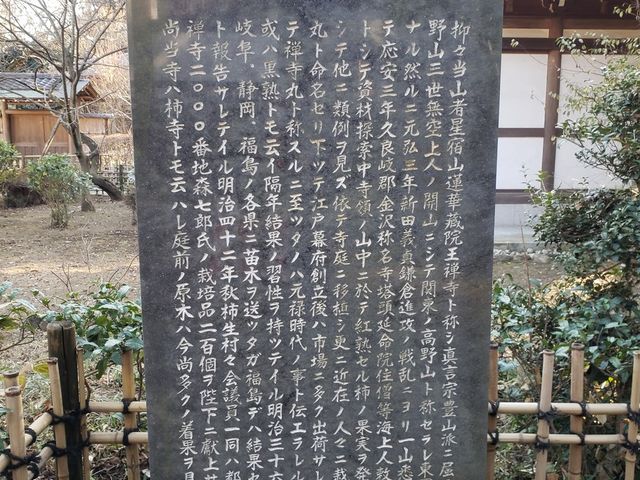 抑々当山者星宿山蓮華蔵院王禅寺ト称シ真言宗豊山派ニ属
野山三世無空上人ノ開山ニシテ関東ノ高野山ト称セラレ東
ナル然ルニ元弘三年新田義貞鎌倉進攻ノ戦乱ニヨリ一山悉
テ応安三年久良岐郡金沢称名寺塔頭延命院住僧等海上人敕
トシテ資材探索中寺領ノ山中ニ於テ紅熟セル柿ノ果実ヲ発
シテ他ニ類例ヲ見ズ依テ寺庭ニ移植シ更ニ近在ノ人々ニ栽
丸ト命名セリ下ツテ江戸幕府創立後ハ市場ニ多ク出荷サレ
テ禅寺丸ト称スルニ至ツタノハ元禄時代ノ事ト伝エラレル
或ハ黒熟トモ云イ隔年結果ノ習性ヲ持ツテイル明治三十六
岐阜、静岡、福島ノ各県ニ苗木ヲ送ツタガ福島デハ結果セ
ト報告サレテイル明治四十二年秋柿生村々会議員一同ハ都
禅寺二〇〇〇番地森七郎氏ノ栽培品二百個ヲ陛下ニ献上サ
尚当寺ハ柿寺トモ云ハレ庭前ノ原木ハ今尚多クノ着果ヲ見